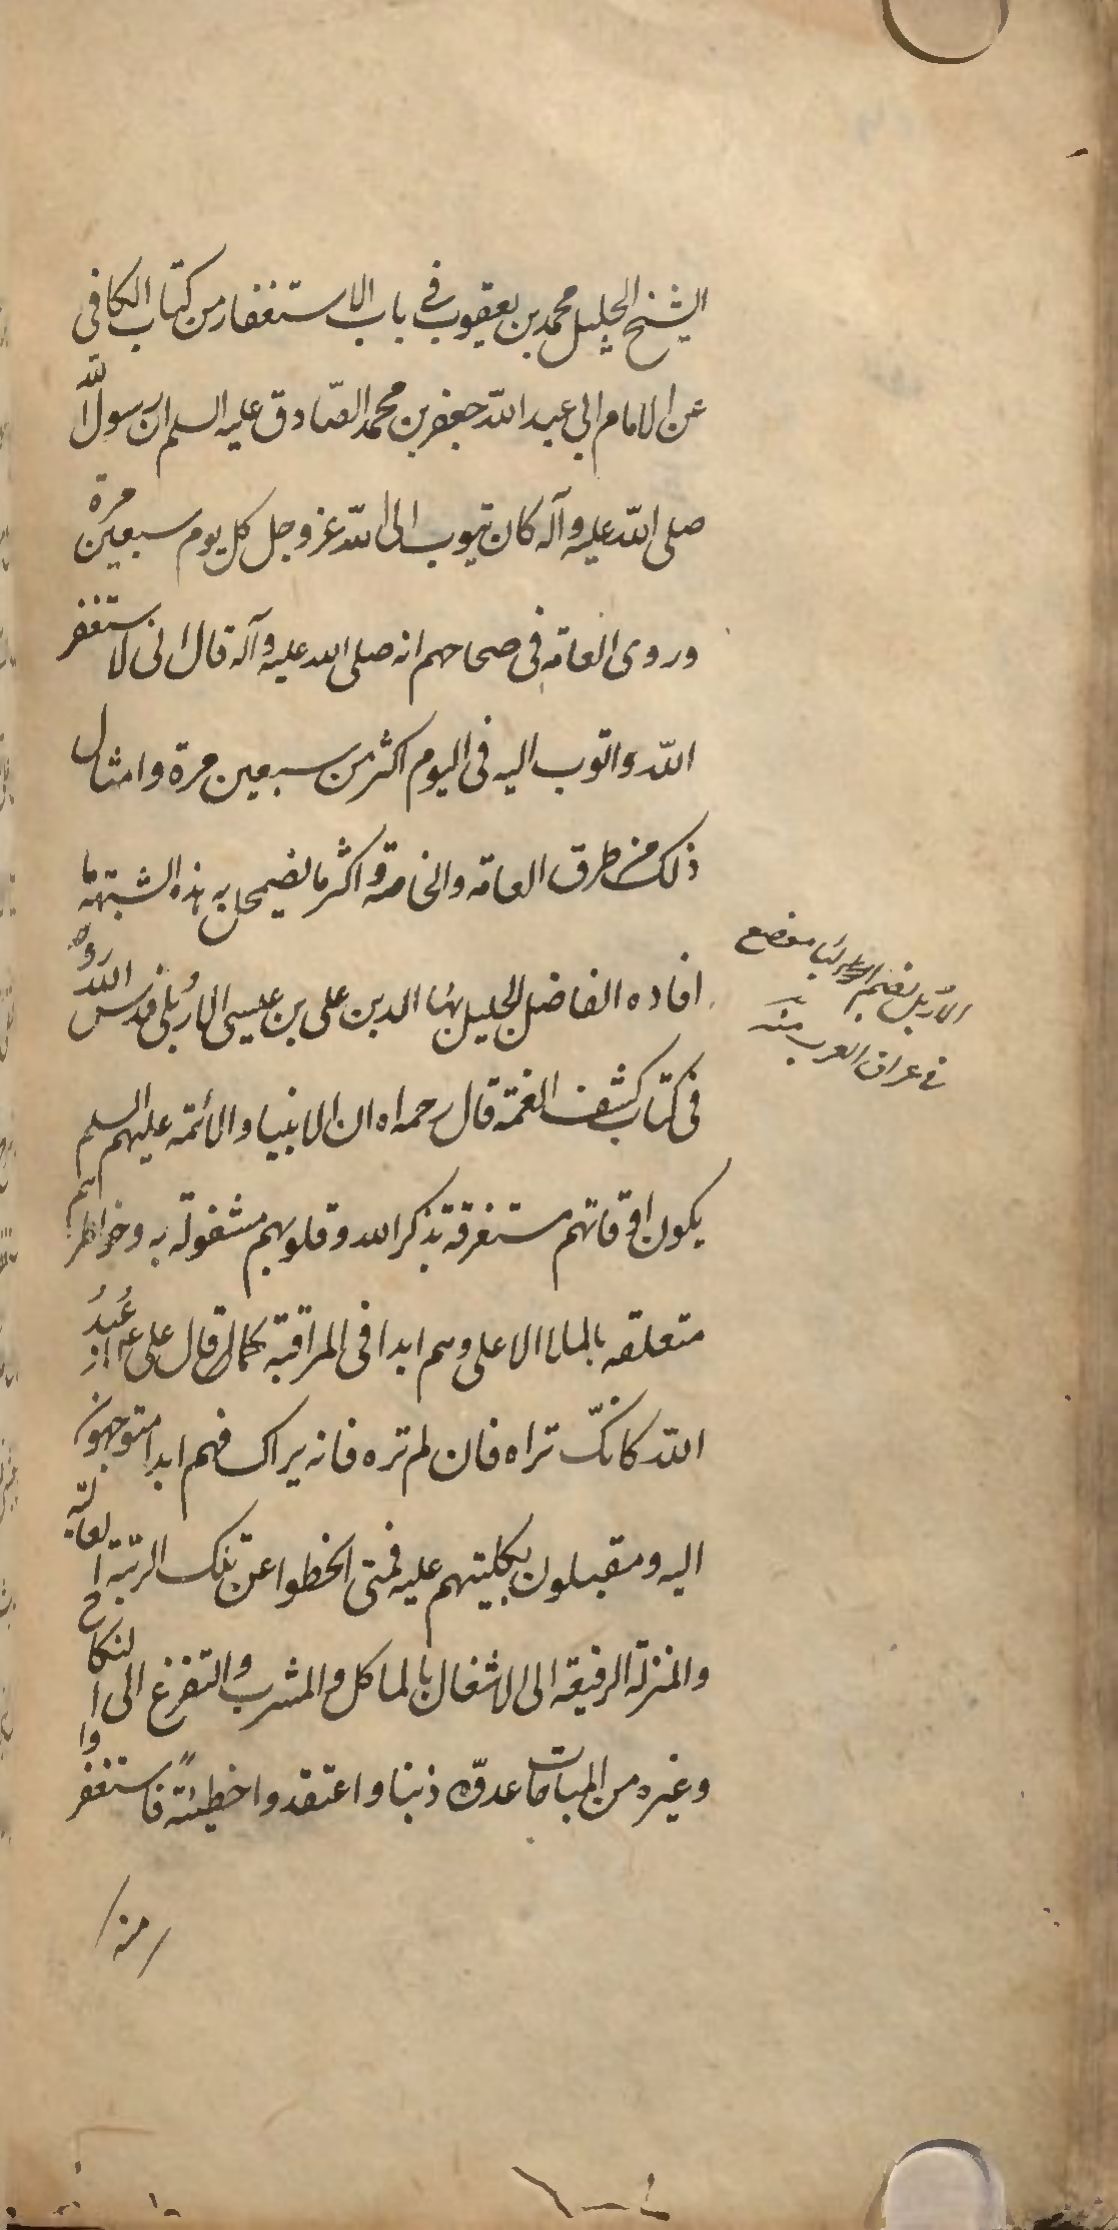 الشيخ الجليل محمد بن يعقوب في باب الاستغفار من كتاب الكافي
عن الامام ابي عبد الله جعفر بن محمد الصّادق عليه السلم ان رسول الله
صلى الله عليه وآله كان يتوب الى الله عز وجل كل يوم سبعين مرة
وروى العامه في صحاحهم انه صلى الله عليه وآله قال انى لاستغفر
الله واتوب اليه فى اليوم اكثر من سبعين مرة وامثال
ذلك من طرق العامه والخاصة واكثر ما يضمحل به هذه الشبهة ما
افاده الفاضل الجليل بهاء الدين على بن عيسى الاربلى قدس الله روحه
فى كتاب كشف الغمة قال رحمه الله ان الانبياء والائمه عليهم السلم
يكون اوقاتهم مستغرقة بذكر الله وقلوبهم مشغولة به وخواطرهم
متعلقه بالملاء الاعلى وهم ابدا فى المراقبة كما قال على ع م اعبد
الله كانّك تراه فان لم تره فانه يراك فهم ابدا متوجهون
اليه ومقبلون بكليتهم عليه فمتى انحطوا عن تلك الرتبة العاليه
والمنزلة الرفيعه الى الاشغال بالماكل والمشرب والتفرغ الى النكاح
وغيره من المباحات عدوّه ذنبا واعتقدوا خطيئةً فاستغفروا
منه
الاربل بضم الباء موضع
في عراق العرب منه